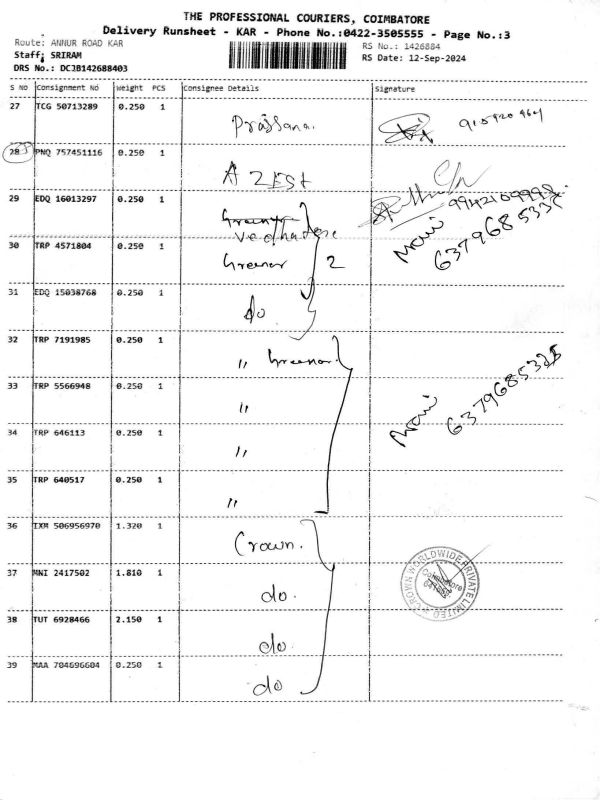 THE PROFESSIONAL COURIERS, COIMBATORE
Delivery Runsheet - KAR - Phone No.:0422-3505555 - Page No.:3
Route: ANNUR ROAD KAR
RS No.: 1426884
Staff: SRIRAM
RS Date: 12-Sep-2024
DRS No.: DCJB142688403
S NO Consignment No Weight PCS Consignee Details Signature
27 TCG 50713289 0.250 1 Prassana.
28 PNQ 757451116 0.250 1 A ZEST
29 EDQ 16013297 0.250 1 Vedhatere
30 TRP 4571804 0.250 1 Greenor 2 Mani 6379685335
31 EDQ 15038768 0.250 1 do
32 TRP 7191985 0.250 1 " Greenor
33 TRP 5566948 0.250 1 " Mani 6379685325
34 TRP 646113 0.250 1 "
35 TRP 640517 0.250 1 "
36 IXM 506956970 1.320 1 Crown.
37 MNI 2417502 1.810 1 do. CROWN WORLDWIDE PRIVATE LIMITED Coimbatore
38 TUT 6928466 2.150 1 do
39 MAA 704696604 0.250 1 do